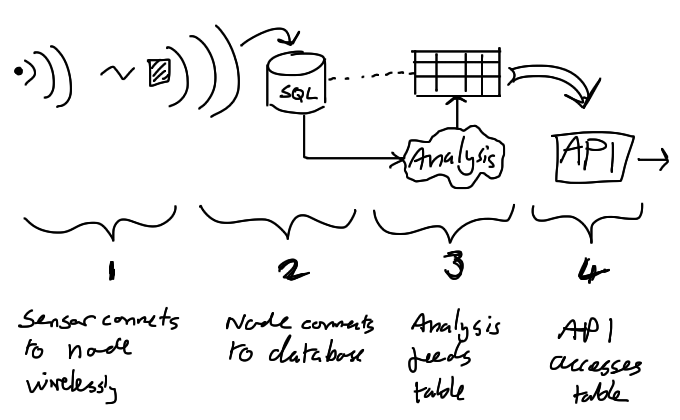 SQL
Analysis
API
1
2
3
4
Sensor connets
to node
wirelessly
Node connects
to database
Analysis
feeds
table
API
accesses
table